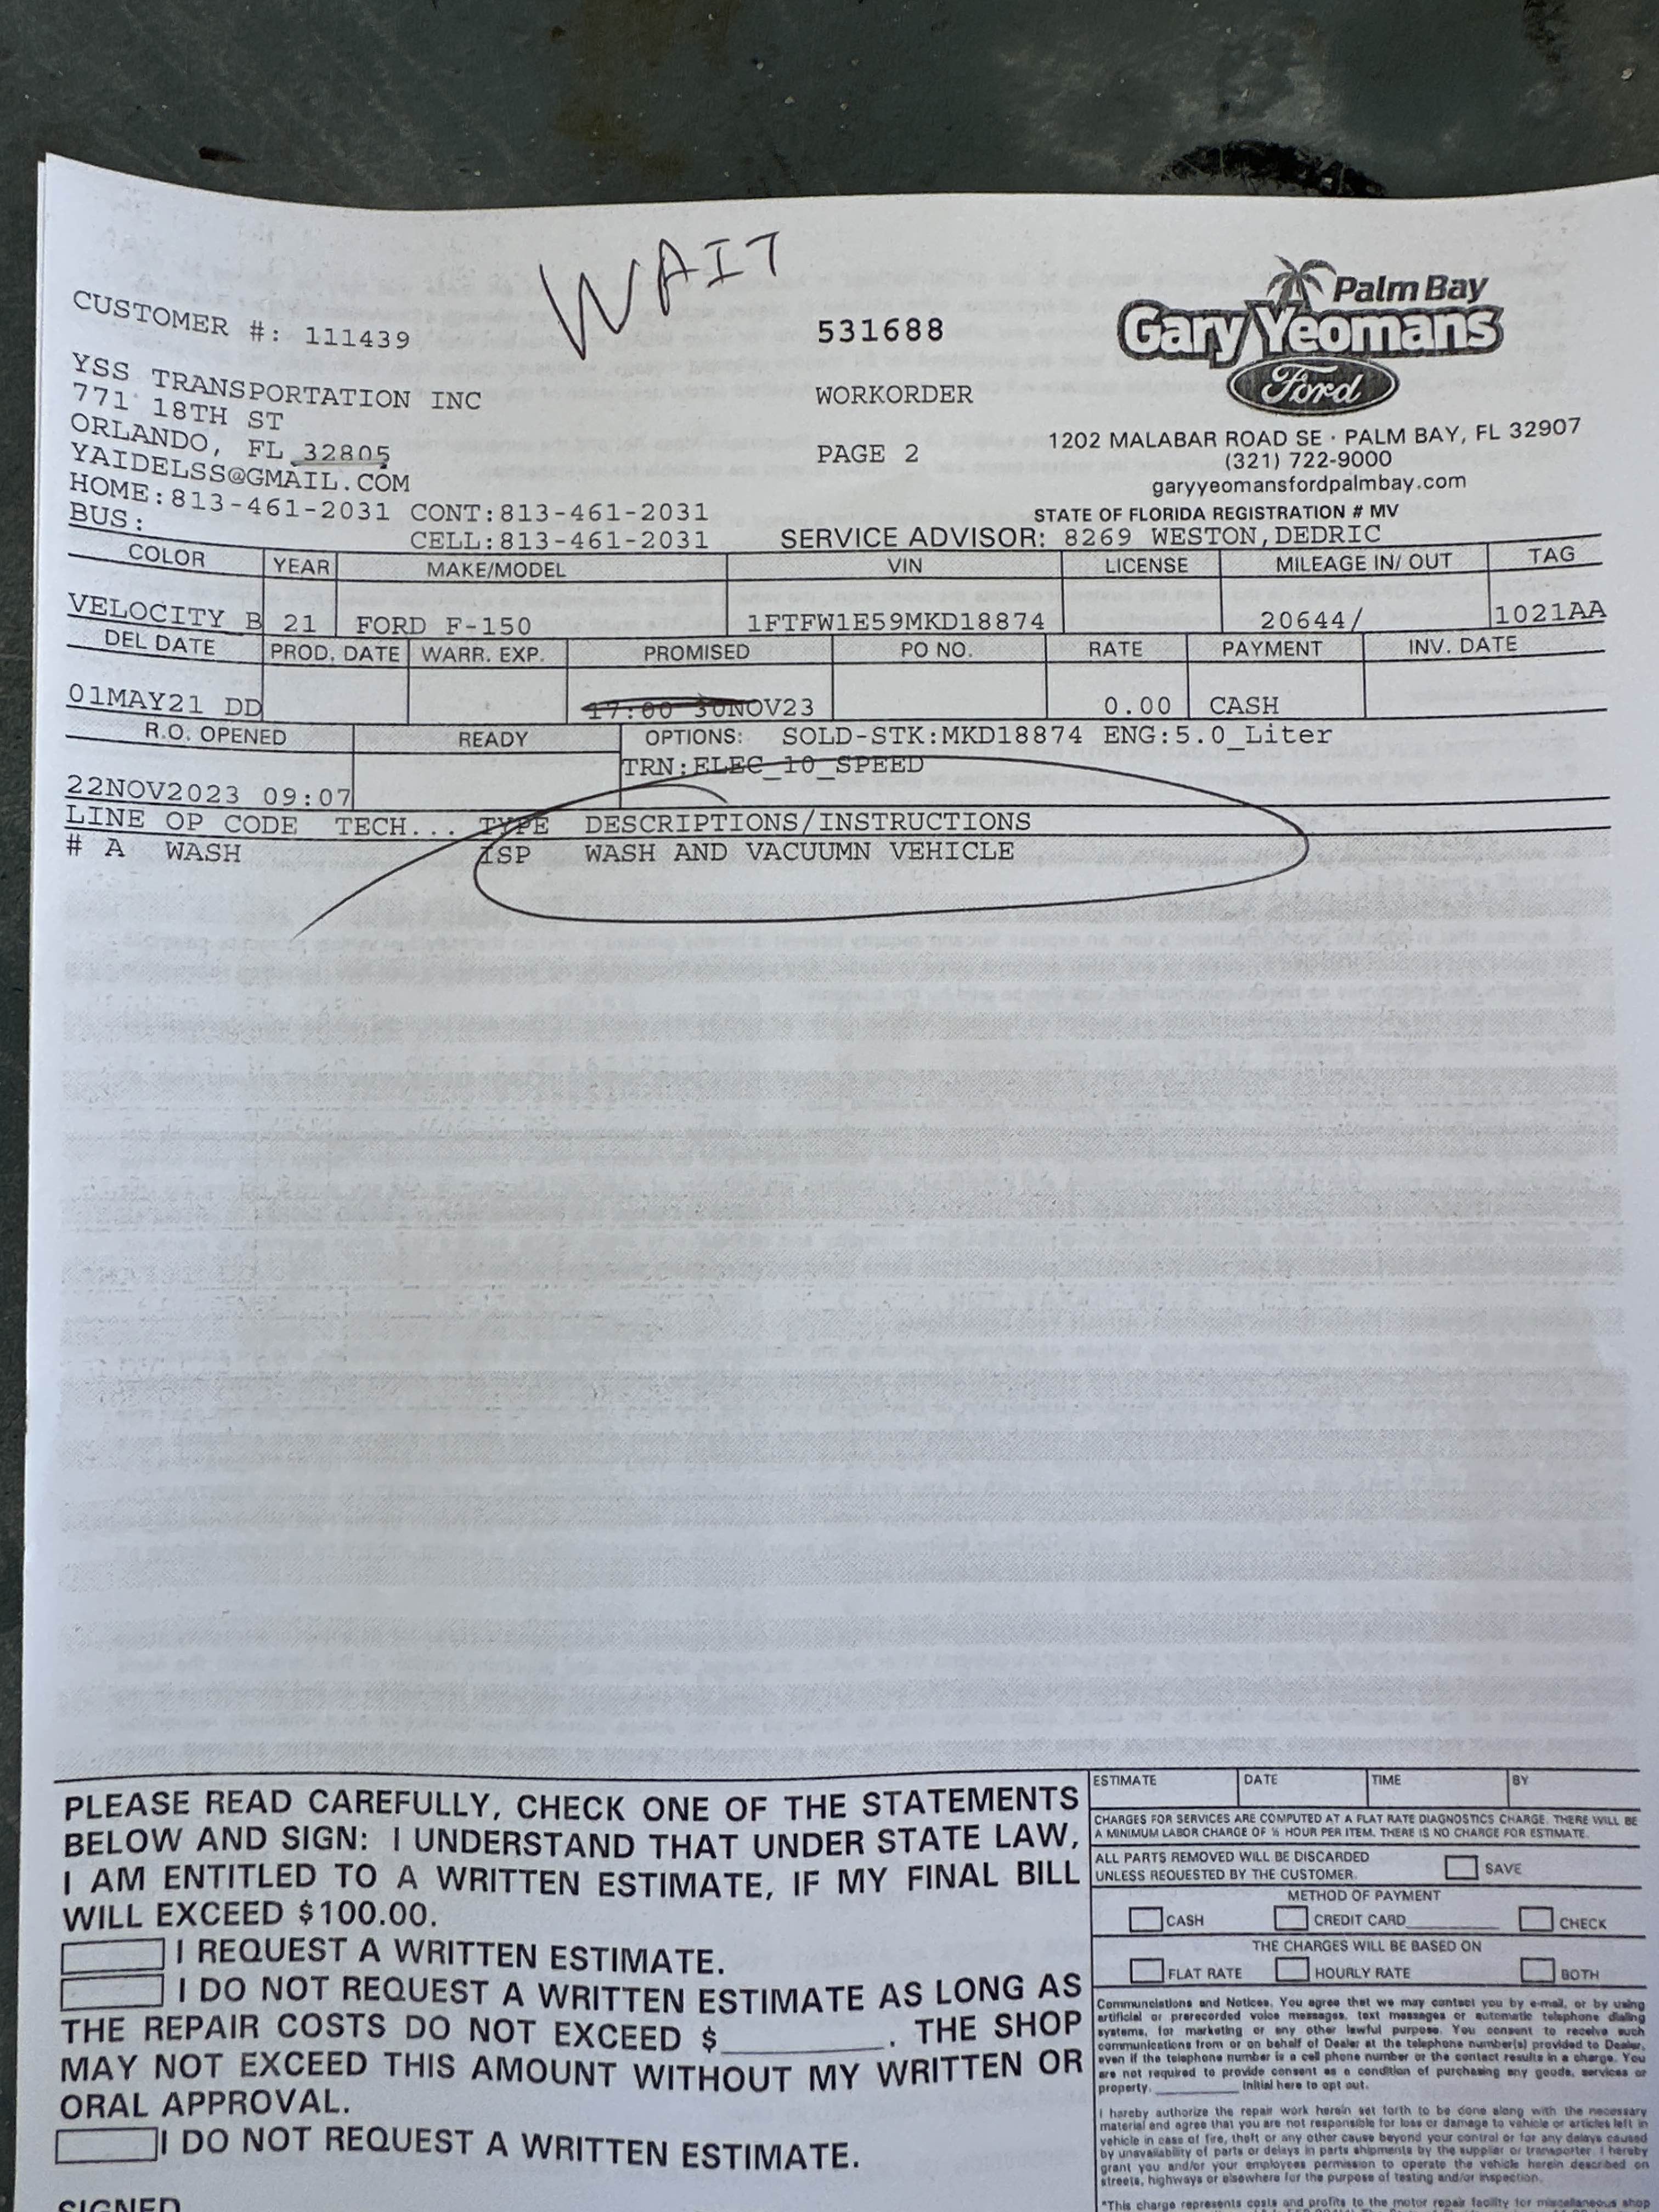 WAIT
CUSTOMER #: 111439
531688
Palm Bay
Gary Yeomans
Ford
YSS TRANSPORTATION INC
771 18TH ST
ORLANDO, FL 32805
YAIDELSS@GMAIL.COM
HOME:813-461-2031 CONT:813-461-2031
BUS: CELL:813-461-2031
WORKORDER
PAGE 2
1202 MALABAR ROAD SE · PALM BAY, FL 32907
(321) 722-9000
garyyeomansfordpalmbay.com
STATE OF FLORIDA REGISTRATION # MV
SERVICE ADVISOR: 8269 WESTON,DEDRIC
COLOR YEAR MAKE/MODEL VIN LICENSE MILEAGE IN/ OUT TAG
VELOCITY B 21 FORD F-150 1FTFW1E59MKD18874 20644/ 1021AA
DEL DATE PROD. DATE WARR. EXP. PROMISED PO NO. RATE PAYMENT INV. DATE
01MAY21 DD 17:00 30NOV23 0.00 CASH
R.O. OPENED READY OPTIONS: SOLD-STK:MKD18874 ENG:5.0_Liter
TRN:ELEC_10_SPEED
22NOV2023 09:07
LINE OP CODE TECH... TYPE DESCRIPTIONS/INSTRUCTIONS
# A WASH ISP WASH AND VACUUMN VEHICLE
PLEASE READ CAREFULLY, CHECK ONE OF THE STATEMENTS
BELOW AND SIGN: I UNDERSTAND THAT UNDER STATE LAW,
I AM ENTITLED TO A WRITTEN ESTIMATE, IF MY FINAL BILL
WILL EXCEED $100.00.
I REQUEST A WRITTEN ESTIMATE.
I DO NOT REQUEST A WRITTEN ESTIMATE AS LONG AS
THE REPAIR COSTS DO NOT EXCEED $__________. THE SHOP
MAY NOT EXCEED THIS AMOUNT WITHOUT MY WRITTEN OR
ORAL APPROVAL.
I DO NOT REQUEST A WRITTEN ESTIMATE.
SIGNED
ESTIMATE DATE TIME BY
CHARGES FOR SERVICES ARE COMPUTED AT A FLAT RATE DIAGNOSTICS CHARGE. THERE WILL BE
A MINIMUM LABOR CHARGE OF ½ HOUR PER ITEM. THERE IS NO CHARGE FOR ESTIMATE.
ALL PARTS REMOVED WILL BE DISCARDED
UNLESS REQUESTED BY THE CUSTOMER. SAVE
METHOD OF PAYMENT
CASH CREDIT CARD__________ CHECK
THE CHARGES WILL BE BASED ON
FLAT RATE HOURLY RATE BOTH
Communciations and Notices. You agree that we may contact you by e-mail, or by using
artificial or prerecorded voice messages, text messages or automatic telephone dialing
systems, for marketing or any other lawful purpose. You consent to receive such
communications from or on behalf of Dealer at the telephone number(s) provided to Dealer,
even if the telephone number is a cell phone number or the contact results in a charge. You
are not required to provide consent as a condition of purchasing any goods, services or
property. __________ Initial here to opt out.
I hereby authorize the repair work herein set forth to be done along with the necessary
material and agree that you are not responsible for loss or damage to vehicle or articles left in
vehicle in case of fire, theft or any other cause beyond your control or for any delays caused
by unavailability of parts or delays in parts shipments by the supplier or transporter. I hereby
grant you and/or your employees permission to operate the vehicle herein described on
streets, highways or elsewhere for the purpose of testing and/or inspection.
*This charge represents costs and profits to the motor repair facility for miscellaneous shop